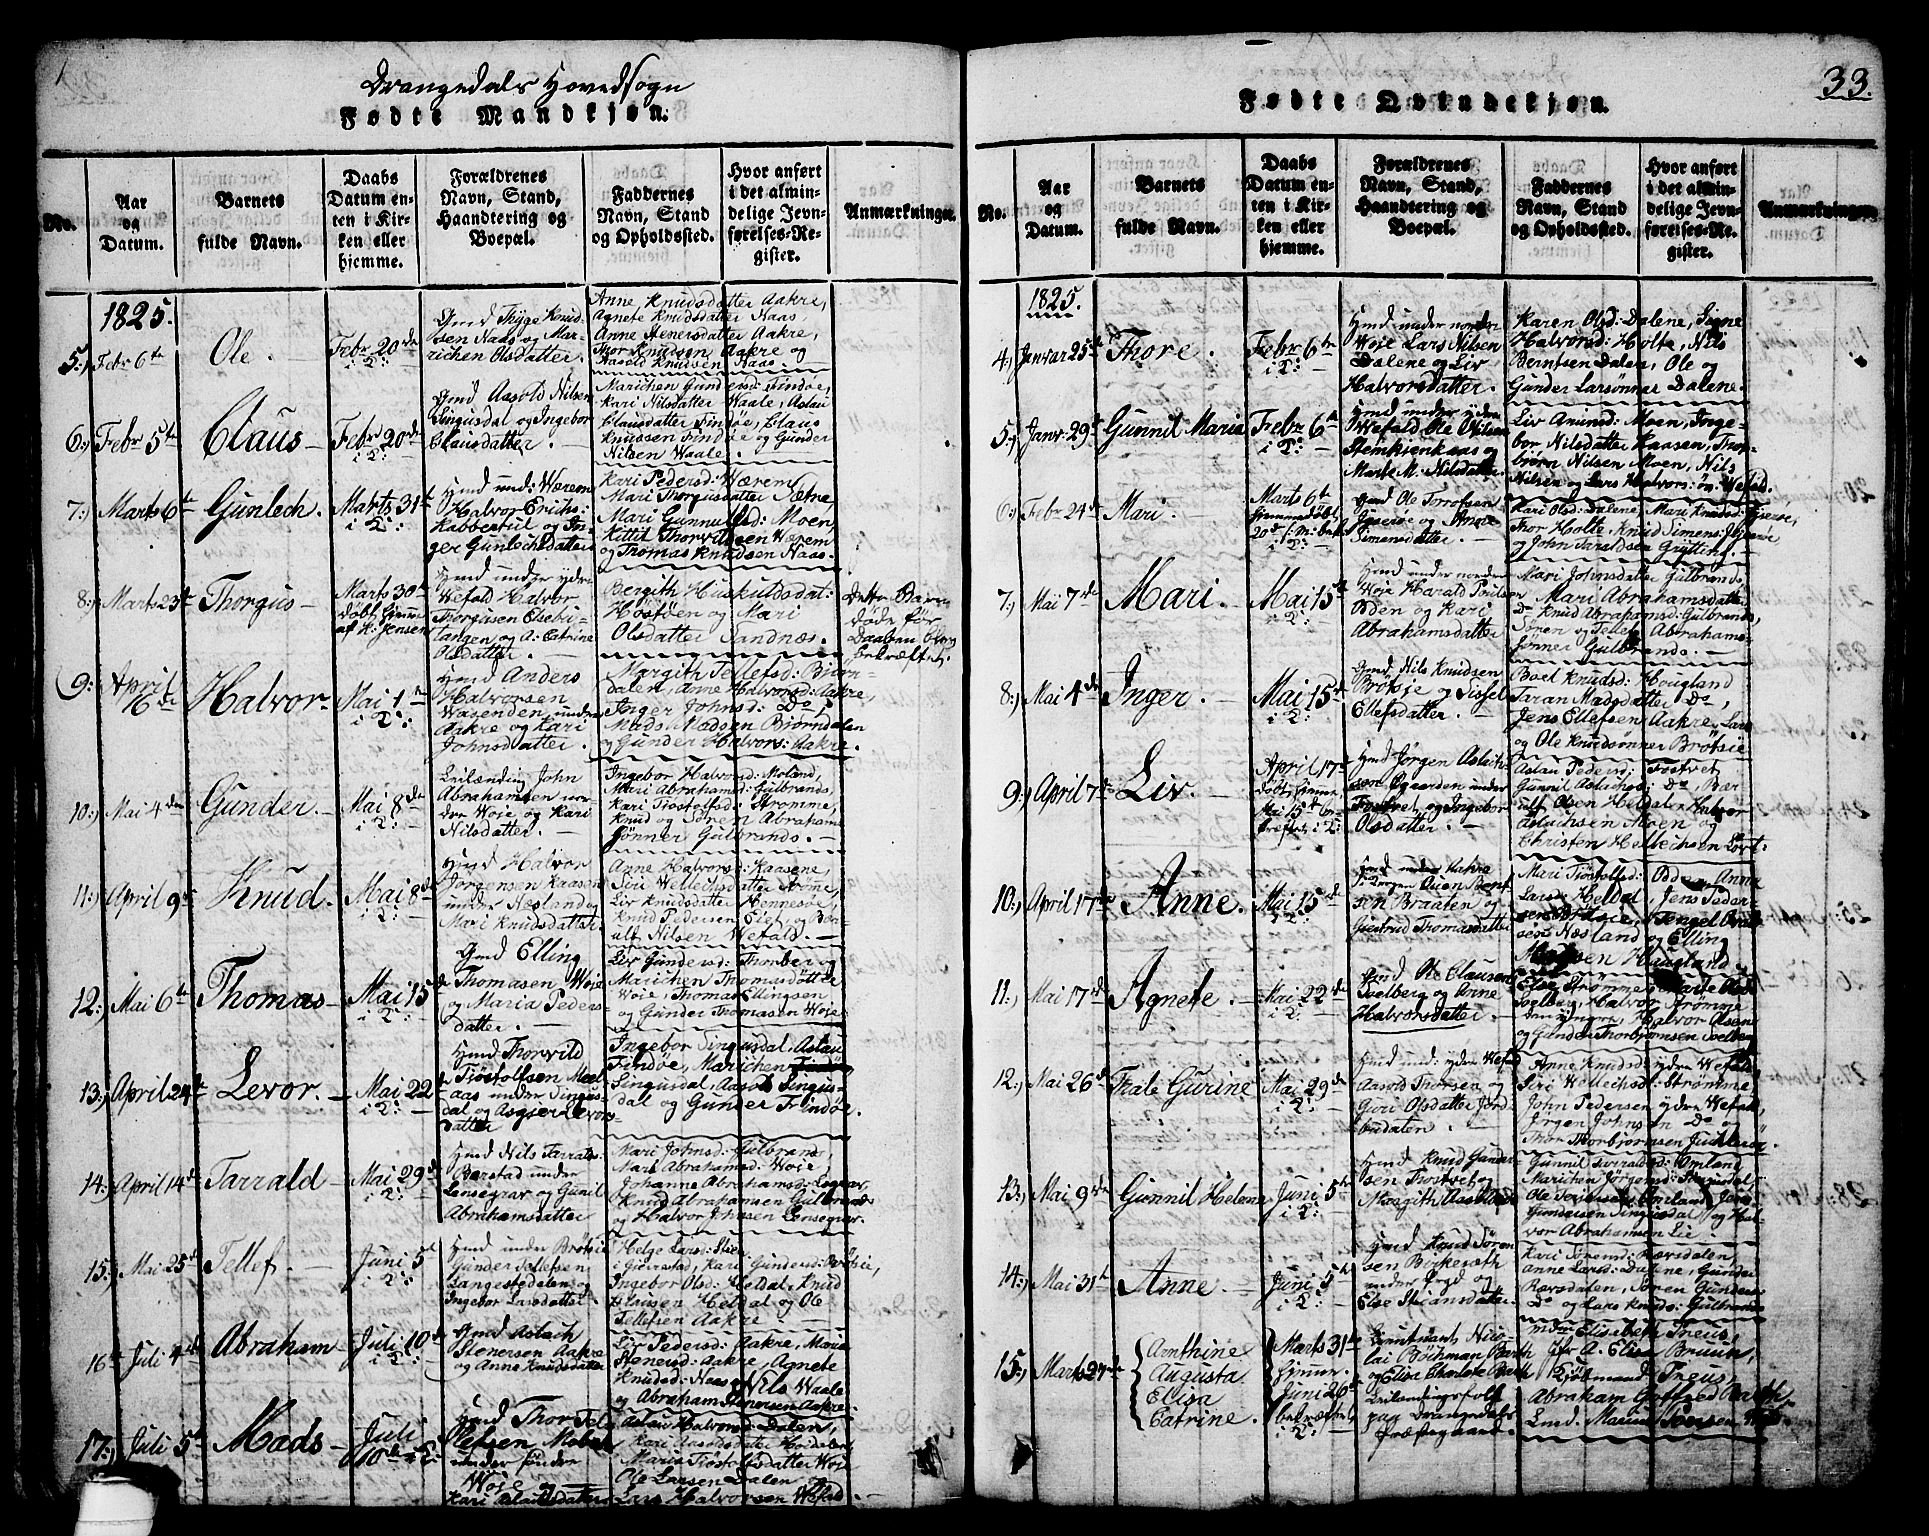 Drangedals Hovedsogn
Fødte Mandkjøn.
No.
Aar
og
Datum.
Barnets
fulde Navn.
Daabs
Datum en-
ten i Kir-
ken eller
hjemme.
Forældrenes
Navn, Stand,
Haandtering og
Boepæl.
Faddernes
Navn, Stand
og Opholdssted.
Hvor anført
i det almin-
delige Jevn-
førelses-Re-
gister.
Anmærkninger.
1825.
5:) Febr 6te
Ole.
Febr 20de
i K:
Gmd Thyge Knud-
sen Naas og Ma-
richen Olsdatter.
Anne Knudsdatter Aakre,
Agnete Knudsdatter Naas,
Anne Stenersdatter Aakre,
Thor Knudsen Aakre og
Aasold Knudsen Naas.
6:) Febr 5te
Claus
Febr 20de
i K:
Gmd Aasold Nilsen
Singusdal og Ingebor
Clausdatter.
Marichen Gundersd: Findøe,
Kari Nilsdatter Waale, Aslau
Clausdatter Findøe, Claus
Knudsen Findøe og Gunder
Nilsen Waale.
7:) Marts 6te
Gunlech.
Marts 31te
i K:
Gmd und: Wærem
Halvor Erichs:
Kabbestiel og In-
ger Gunlechsdatter
Kari Pedersd: Wærem
Mari Thorgusdatter Sætne,
Mari Gunnulfsd: Moen
Kittil Thorvildsen Wærem
og Thomas Knudsen Naas.
8:) Marts 23de
Thorgus
Marts 30te
døbt hjemme
af K: Jensen
Gmd under ydre
Wefald Halvor
Thorgusen Elsebu-
tangen og A: Catrine
Olsdatter.
Bergith Huskuldsdat:
Hostveit og Mari
Olsdatter Sandnæs.
Dette Barn
døde før
Daaben blev
bekræftet.
9:) April
16de
Halvor
Mai 1te
i K:
Gmd Anders
Halvorsen
Wasenden under
Aakre og Kari
Johnsdatter.
Margith Tellefsd: Bjørn-
dalen, Anne Halvorsd: Aakre,
Inger Johnsd: Do,
Mads Madsen Bjørndalen
og Gunder Halvors: Aakre.
10:) Mai 4de
Gunder.
Mai 8de
i K:
Leilænding John
Abrahamsen nor-
dre Woie og Kari
Nilsdatter.
Ingebor Halvorsd: Moland,
Mari Abrahamsd: Gulbrands,
Kari Tiøstolfsd: Strømme,
Knud og Søren Abrahams
Sønner Gulbrands.
11:) April 9de
Knud.
Mai 8de
i K:
Gmd Halvor
Jørgensen Kaasen
under Næsland og
Mari Knudsdatter
Anne Halvors: Kaasene,
Siri Wellechsdatter Strøme,
Liv Knudsdatter Hennesøe,
Knud Pedersen Siet, og Ber-
ulf Nilsen Wefald.
12:) Mai 6te
Thomas
Mai 15de
i K:
Gmd Elling
Thomasen Woie
og Maria Peders-
datter.
Liv Gundersd: Thorber og
Marichen Thomasdatter
Woie, Thomas Ellingsen
og Gunder Thomasen Woie.
13:) April 24de
Levor.
Mai 22de
i K:
Gmd Thorvild
Tiøstolfsen Mæl-
aas under Singus-
dal og Asgjer Levors-
datter
Ingebor Singusdal, Aslau
Findøe, Marichen
Singusdal, Aasold Singus-
dal og Gunder Findøe.
14:) April 14de
Tarrald
Mai 29de
i K:
Gmd Nils Tarralds:
Barstad under
Lensegrav og Gunil
Abrahamsdatter
Mari Johnsd: Gulbrand,
Mari Abrahamsd: Woie,
Johanne Abrahamsd: Lensegrav
Knud Abrahamsen Gulbrands
og Halvor Johnsen Lensegrav.
15:) Mai 25de
Tellef.
Juni 5te
i K:
Gmd under Brøtsie
Gunder Tellefsen
Langestedalen og
Ingebor Larsdatter.
Helge Larsd: Stien
i Gierrestad, Kari Gundersd: Brøtsie,
Ingebor Olsd: Heldal, Knud
Clausen Heldal og Ole
Tellefsen Aakre
16te Juli 4de
Abraham
Juli 10de
i K:
Gmd Aslach
Stenersen Aakre
og Anne Knudsdatter
Liv Pedersd: Aakre, Maria
Stenersd: Aakre, Agnete
Knudsd: Naas, Nils Waale
og Abraham Stenersen Aakre.
17:) Juli 5te
Mads
Juli
10de i K:
Gmd Thor Tel-
lefsen Moben
under søndre
Woie og
Kari Aslausdatter
Aslau Halvorsd: Dalen,
Kari Aasoldsdatter Heldalen,
Maria Tiostolfsdatter Woie
Ole Larsen Dalen
Lars Halvorsen Wefald.
33.
Fødte Qvindekjøn.
No.
Aar
og
Datum.
Barnets
fulde Navn.
Daabs
Datum en-
ten i Kir-
ken eller
hjemme.
Forældrenes
Navn, Stand,
Haandtering og
Boepæl.
Faddernes
Navn, Stand
og Opholdssted.
Hvor anført
i det almin-
delige Jevn-
førelses-Re-
gister.
Anmærkninger.
1825.
4:) Januar 25de
Thore.
Febr 6te
i K:
Gmd under nordre
Woje Lars Nilsen
Dalene og Liv
Halvorsdatter.
Karen Olsd: Dalene, Signe
Halvorsd: Holte, Nils
Berntsen Dalen, Ole og
Gunder Larsønner Dalene.
5:) Janr 29de
Gunnil Maria
Febr 6te
i K:
Gmd under ydre
Wefald Ole Nilsen
Stemksenkaas og
Marte M. Nilsdatter.
Liv Amunds: Moen, Inge-
bor Nilsdatter Kaasen, Thor-
bjørn Nilsen Moen, Nils
Nilsen og Lars Halvors: øn: Wefald.
6:) Febr 24de
Mari.
Marts 6te
hjemmedøbt
20de f: M: bek:
i K:
Gmd Ole Torrofsen
Gjserøe og Anne
Simensdatter.
Kari Olsd: Dalene, Mari Knudsd: Gjerøe,
Thor Holte, Knud Simens: Gjerøe
og John Taraldsen Grytting.
7:) Mai 7de
Mari.
Mai 15de
i K:
Gmd under nordre
Woje Harald Poulsen
Odden og Kari
Abrahamsdatter
Mari Johnsdatter Gulbrands,
Mari Abrahamsdatter
Do Knud Abrahamsd: Gulbrands,
Søren og Tellef Abrahams-
sønner Gulbrands.
8:) Mai 4de
Inger
Mai 15de
i K:
Gmd Nils Knudsen
Brøtsie og Sissel
Ellefsdatter.
Boel Knudsd: Hougland
Taran Madsdatter Do,
Jens Ellefsen Aakre, Lars
og Ole Knudsønner Brøtsie
9:) April 7de
Liv.
April 17de
døbt hjemme
Mai 15de be-
kræftet i K:
Gmd Jørgen Aslach-
sen Øgaarden under
Tostvet og Ingebor
Olsdatter.
Aslau Pedersd: Tostvet
Gunnil Aslachsd: Do, Bær-
ulf Olsen Heldal, Halvor
Aslachsen Moen og
Christen Hellechsen Lovt.
10:) April 17de
Anne.
Mai 15de
i K:
Gmd under Aakre
Ouen Bent-
sen Braaten og
Giertrud Thomasdatter
Mari Tiøstolfsd: Odden, Anna
Larsd: Heldal, Jens Peder-
sen Brøtsie, Tengel
sen Næsland og Elling
Haugland
11:) Mai 17de
Agnete.
Mai 22de
i K:
Gmd Ole Clausen
Solberg og Anne
Halvorsdatter.
Else Strømme, Marte Olsd:
Solberg, Halvor Strømme
den yngre, Halvor Olsen
og Gunder Thorbjørnsen Solberg.
12:) Mai 26de
Thale Gurine
Mai 29de
i K:
Gmd und: ydre Wefald
Aasold Thorsen og
Guri Olsdatter Jord-
budalen.
Anne Knudsd: ydre Wefald,
Siri Wellechsd: Strømme,
John Pedersen ydre Wefald,
Jørgen Johnsen Do og
Thor Thorbjørnsen
13:) Mai 9de
Gunnil Helene
Juni 5te
i K:
Gmd Knud Gunder-
sen Tostvet og
Margith Aasoldsd:
Gunnil Tarraldsd: Omland
Marichen Jørgensd: Singusdal,
Ole Omland, Jens
Gundersen Singusdal og Hal-
vor Abrahamsen Lie.
14:) Mai 31te
Anne.
Juni 5te
i K:
Gmd Knud Søren-
sen Birkeroth
under Øygd og
Else Stiansdatter.
Kari Sørensd: Rørsdalen,
Anne Larsd: Dalene, Gunder
Rørsdalen, Søren Gunders:
Do og Lars Knuds: Gulbrands
15:) Marts 27de
Arnthine
Augusta
Elisa
Catrine.
Marts 31te
hjemme
Juni 26de
bekræftet
i K:
Lieutnant Nico-
lai Bøchman Barth
og Elisa Charlotte Barth
Leilændingsfolk
paa Drangedals
Præstegaard.
Mdm Elisabeth Treus,
Jfr A. Elisa Bruun,
Kjøbmand Treus,
Abraham Gotfred Barth,
Lmd. Marius